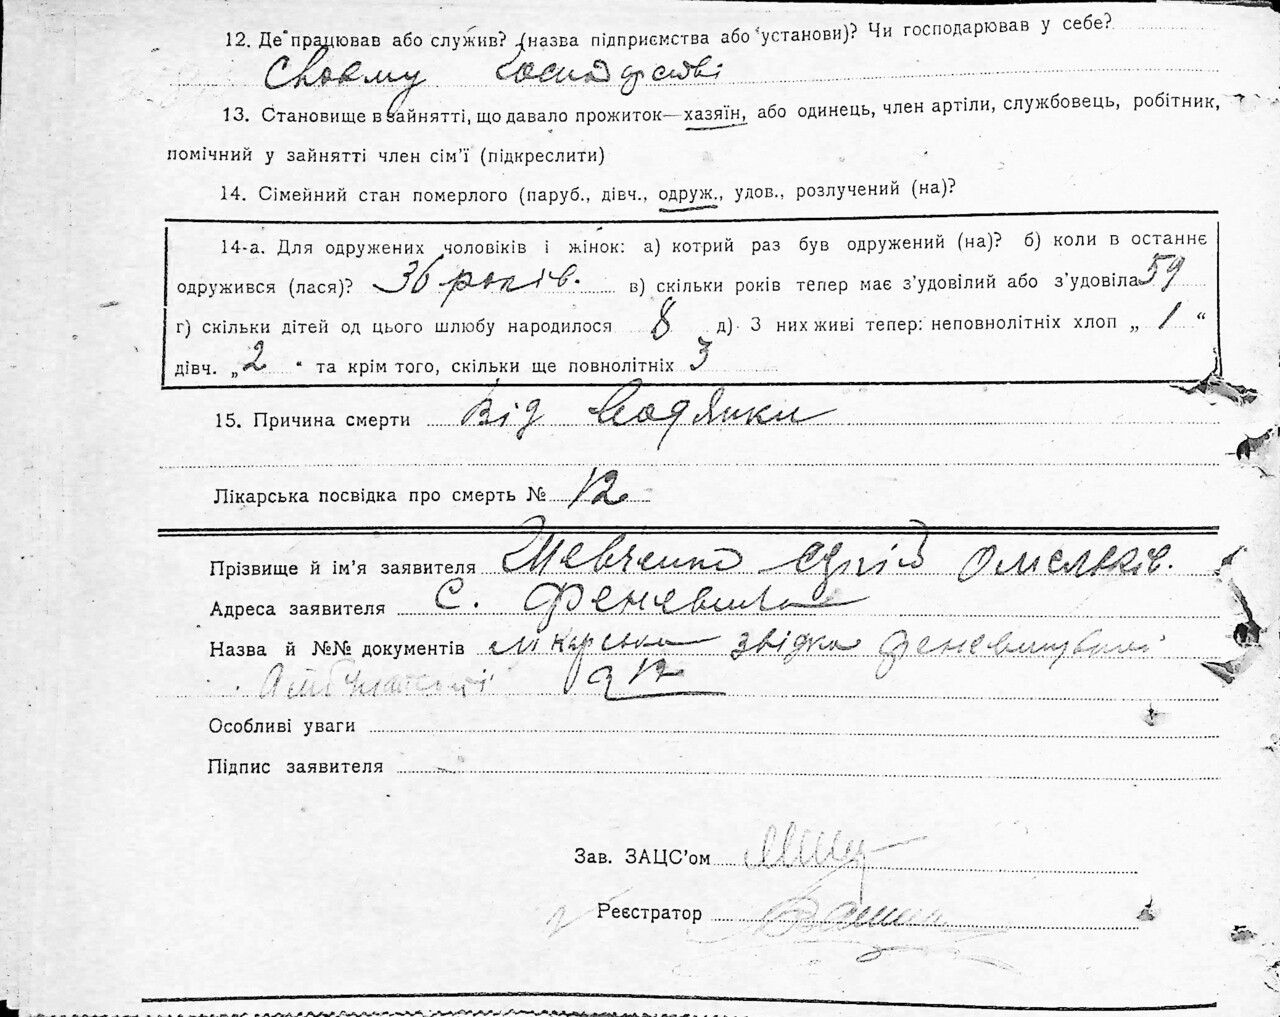 12. Де працював або служив? (назва підприємства або установи)? Чи господарював у себе?
Своєму Господарстві
13. Становище в зайнятті, що давало прожиток—хазяїн, або одинець, член артіли, службовець, робітник,
помічний у зайнятті член сім'ї (підкреслити)
14. Сімейний стан померлого (паруб., дівч., одруж., удов., розлучений (на)?
14-а. Для одружених чоловіків і жінок: а) котрий раз був одружений (на)? б) коли в останнє
одружився (лася)? 36 років. в) скільки років тепер має з'удовілий або з'удовіла 59
г) скільки дітей од цього шлюбу народилося 8 д) З них живі тепер: неповнолітніх хлоп „ 1 “
дівч. „ 2 “ та крім того, скільки ще повнолітніх 3
15. Причина смерти Від Водянки
Лікарська посвідка про смерть № 12
Прізвище й ім'я заявителя Шевченко Омельків.
Адреса заявителя с.
Назва й №№ документів лікарська звідка
12
Особливі уваги
Підпис заявителя
Зав. ЗАЦС'ом
Реєстратор